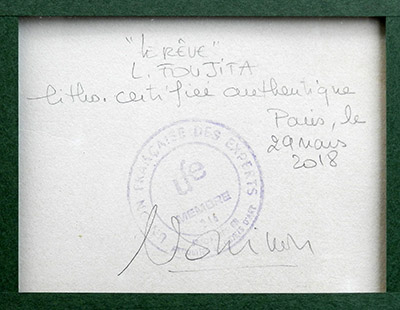 "LE RÊVE"
L. FOUJITA
litho. certifiée authentique
Paris, le
29 mars
2018
UNION FRANÇAISE DES EXPERTS
ufe
MEMBRE